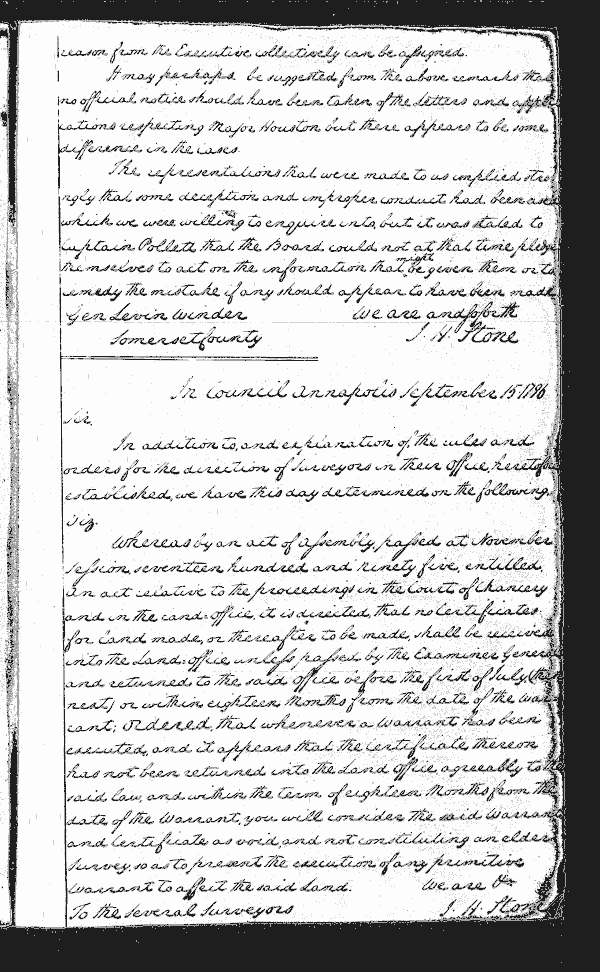 reason from the Executive collectively can be assigned.
It may perhaps be suggested from the above remarks that
no official notice should have been taken of the Letters and appli
cations respecting Major Houston but there appears to be some
difference in the cases.
The representations that were made to us implied stro
ngly that some deception and improper conduct had been used
which we were willing to enquire into, but it was stated to
Captain Pollett that the Board could not at that time pledge
themselves to act on the information that might be given them or to
remedy the mistake if any should appear to have been made
Gen Levin Winder We are and so forth
Somerset County J. H. Stone
In Council Annapolis September 15 1796
Sir,
In addition to, and explanation of, the rules and
orders for the direction of Surveyors in their Office, heretofore
established, we have this day determined on the following,
Viz.
Whereas by an act of Assembly, passed at November
Session, seventeen hundred and ninety five, entitled,
An act relative to the proceedings in the Court of Chancery
and in the Land Office, it is directed, that no Certificates
for Land made, or thereafter to be made, shall be received
into the Land Office unless passed by the Examiner General
and returned to the said Office before the first of July (then
next) or within eighteen Months from the date of the War
rant; Ordered, that whenever a Warrant has been
executed, and it appears that the Certificate thereon
has not been returned into the Land Office agreeably to the
said law, and within the term of eighteen Months from the
date of the Warrant, you will consider the said Warrant
and Certificate as void, and not constituting an elder
Survey, so as to prevent the execution of any primitive
Warrant to affect the said Land. We are &c
To the Several Surveyors J. H. Stone